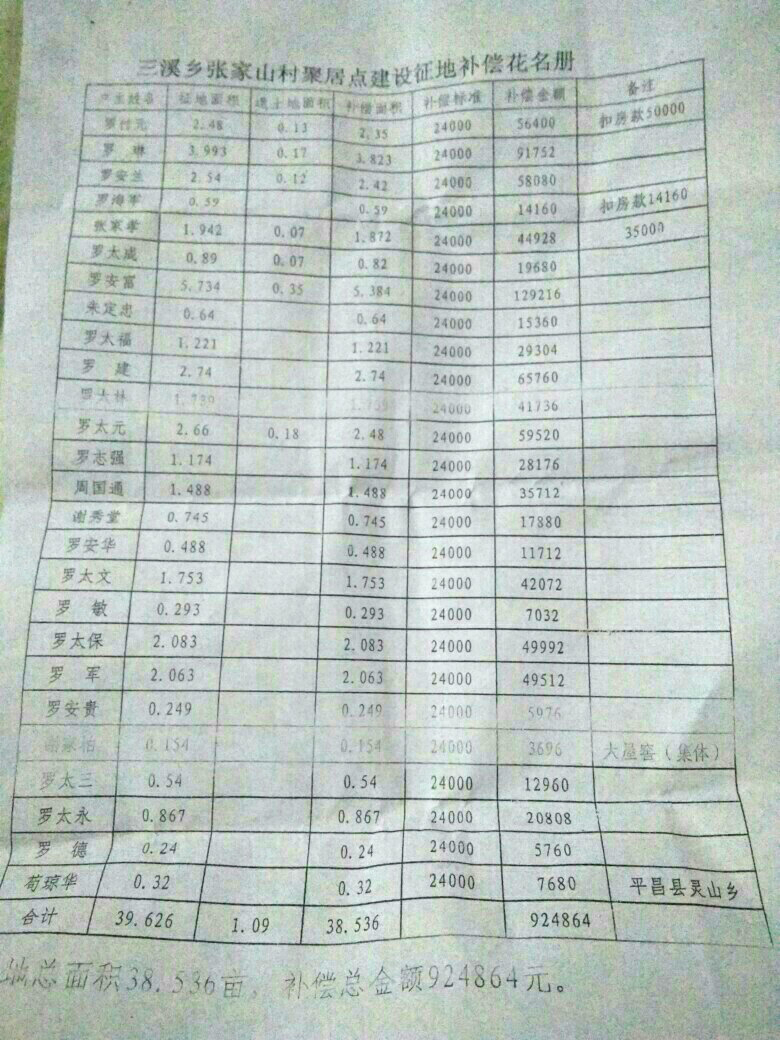 三溪乡张家山村聚居点建设征地补偿花名册
户主姓名 征地面积 退土地面积 补偿面积 补偿标准 补偿金额 备注
罗付元 2.48 0.13 2.35 24000 56400 扣房款50000
罗 琳 3.993 0.17 3.823 24000 91752
罗安兰 2.54 0.12 2.42 24000 58080
罗海军 0.59 0.59 24000 14160 扣房款14160
张家孝 1.942 0.07 1.872 24000 44928 35000
罗太成 0.89 0.07 0.82 24000 19680
罗安富 5.734 0.35 5.384 24000 129216
朱定忠 0.64 0.64 24000 15360
罗太福 1.221 1.221 24000 29304
罗 建 2.74 2.74 24000 65760
罗大林 1.739 1.739 24000 41736
罗太元 2.66 0.18 2.48 24000 59520
罗志强 1.174 1.174 24000 28176
周国通 1.488 1.488 24000 35712
谢秀堂 0.745 0.745 24000 17880
罗安华 0.488 0.488 24000 11712
罗太文 1.753 1.753 24000 42072
罗 敏 0.293 0.293 24000 7032
罗太保 2.083 2.083 24000 49992
罗 军 2.063 2.063 24000 49512
罗安贵 0.249 0.249 24000 5976
谢家柏 0.154 0.154 24000 3696 大屋窖（集体）
罗太三 0.54 0.54 24000 12960
罗太永 0.867 0.867 24000 20808
罗 德 0.24 0.24 24000 5760
苟琼华 0.32 0.32 24000 7680 平昌县灵山乡
合计 39.626 1.09 38.536 924864
地总面积38.536亩，补偿总金额924864元。